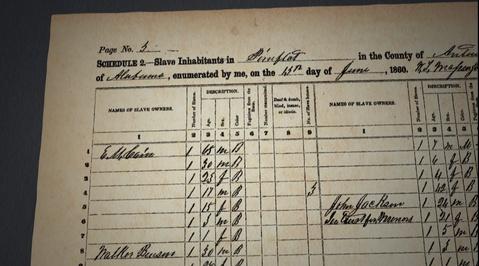 Page No. 3
SCHEDULE 2.—Slave Inhabitants in in the County of
of Alabama, enumerated by me, on the day of June, 1860.
NAMES OF SLAVE OWNERS. Number of Slaves. DESCRIPTION. Age. Sex. Color. Fugitives from the State. Number manumitted. Deaf & dumb, blind, insane, or idiotic. No. of Slave houses. NAMES OF SLAVE OWNERS. Number of Slaves. DESCRIPTION. Age. Sex. Color. Fugitives from the
1 2 3 4 5 6 7 8 9 1 2 3 4 5 6
1 E. M. Cain 1 65 m B 1 7 m M
2 1 30 m B 1 6 f B
3 1 25 f B 1 4 f B
4 1 17 m B 3 1 42 f B
5 1 15 f B John Jackson 1 24 m B
6 1 3 m B In Trust for 1 21 f B
7 1 1 f B 1 5 m
8 Walker Benson 1 30 m B 1 3 m